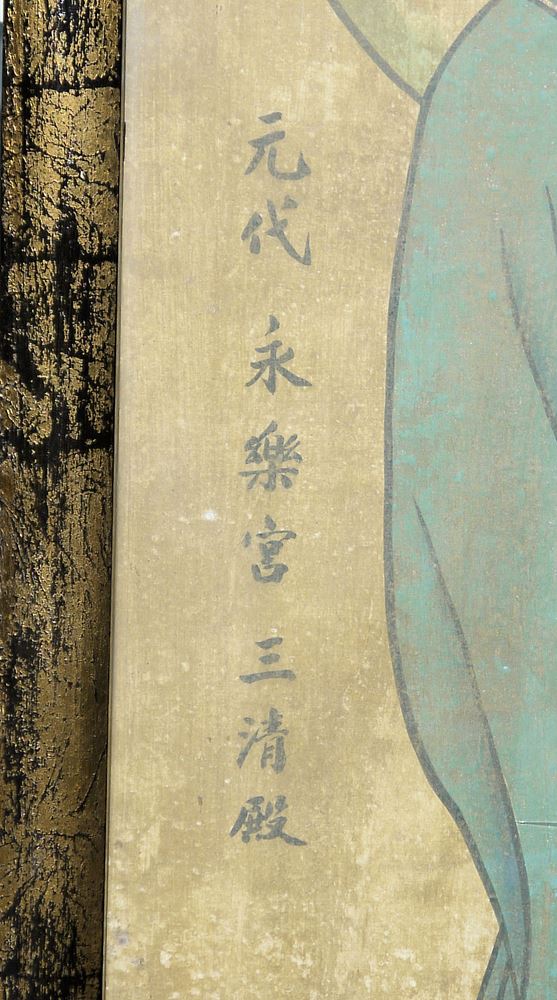 元代 永樂宮 三清殿